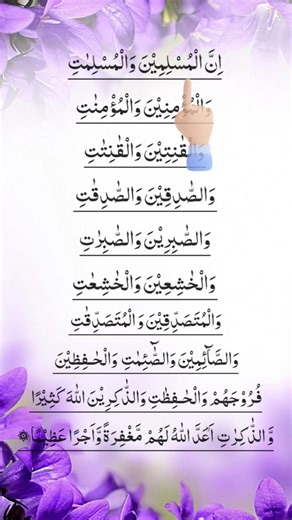 اِنَّ الْمُسْلِمِيْنَ وَالْمُسْلِمٰتِ
وَالْمُؤْمِنِيْنَ وَالْمُؤْمِنٰتِ
وَالْقٰنِتِيْنَ وَالْقٰنِتٰتِ
وَالصّٰدِقِيْنَ وَالصّٰدِقٰتِ
وَالصّٰبِرِيْنَ وَالصّٰبِرٰتِ
وَالْخٰشِعِيْنَ وَالْخٰشِعٰتِ
وَالْمُتَصَدِّقِيْنَ وَالْمُتَصَدِّقٰتِ
وَالصَّآئِمِيْنَ وَالصّٰٓئِمٰتِ وَالْحٰفِظِيْنَ
فُرُوْجَهُمْ وَالْحٰفِظٰتِ وَالذّٰكِرِيْنَ اللّٰهَ كَثِيْرًا
وَّالذّٰكِرٰتِ اَعَدَّ اللّٰهُ لَهُمْ مَّغْفِرَةً وَّاَجْرًا عَظِيْمًا ۞